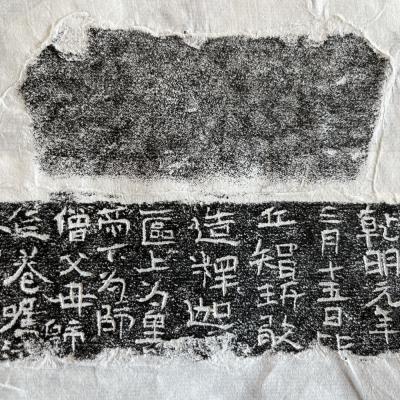 乾明元年
三月十五日比
丘智敬
造釋迦
區上为皇
帝下为師
僧父母